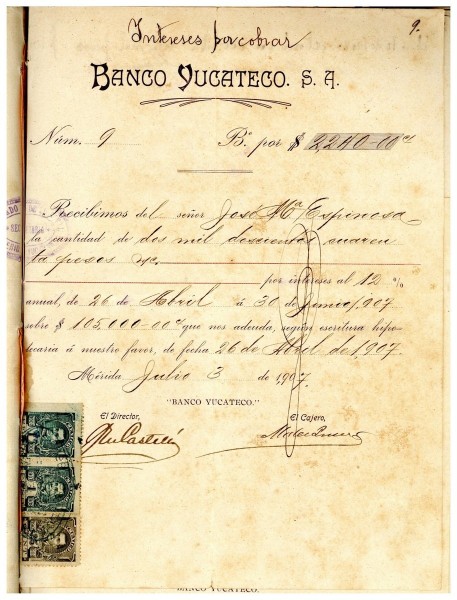 Intereses por cobrar
9.
BANCO YUCATECO. S. A.
Núm. 9 Bº por $ 2,240-00 cs
Recibimos del señor José Mª Espinosa
la cantidad de dos mil doscientos cuaren
ta pesos
por intereses al 12 %
anual, de 26 de Abril á 30 de Junio/907
sobre $ 105.000-00 cs que nos adeuda, según escritura hipo-
tecaria á nuestro favor, de fecha 26 de Abril de 1,907.
Mérida Julio 3 de 1907
"BANCO YUCATECO."
El Director, El Cajero,
BANCO YUCATECO.